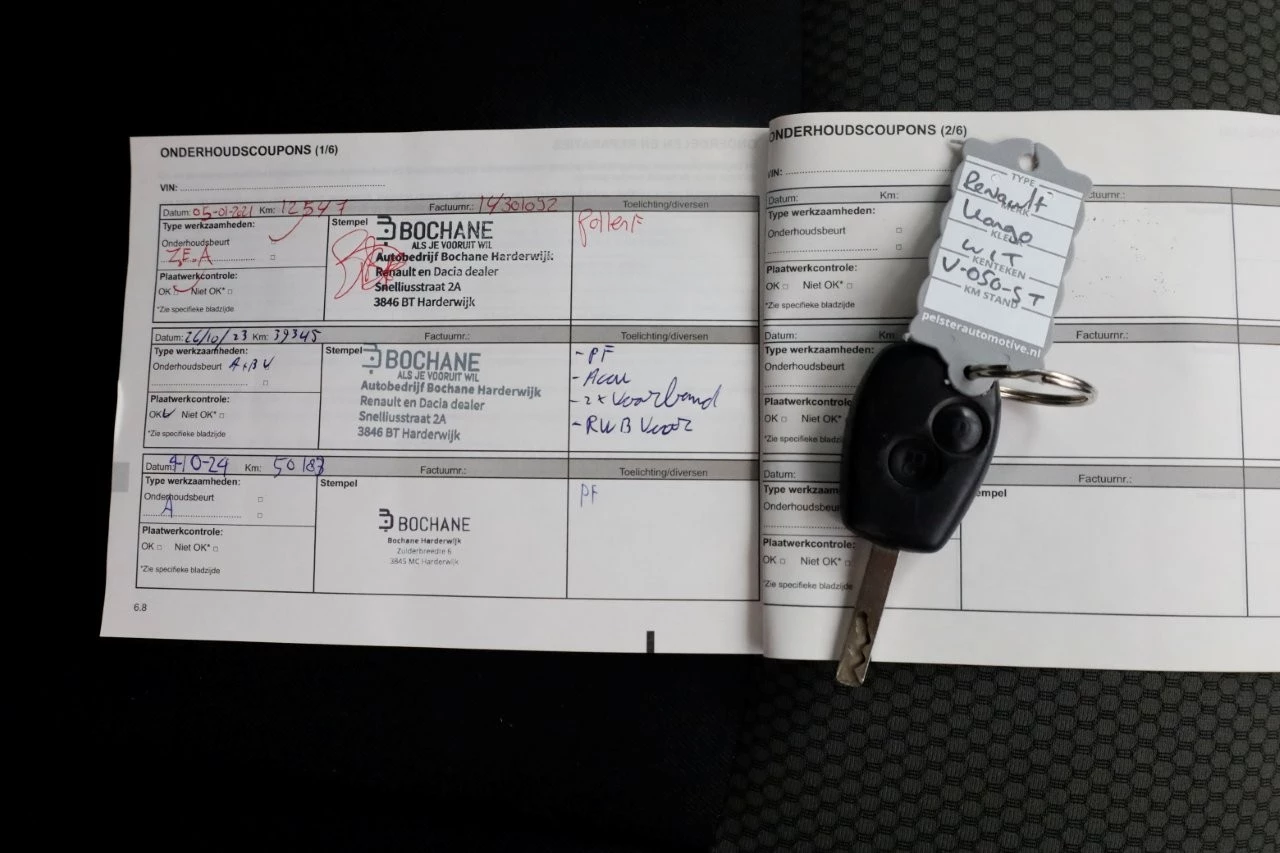 ONDERHOUDSCOUPONS (1/6)
VIN:
Datum: 05-01-2021 Km: 12547 Factuurnr.: 14301092 Toelichting/diversen
Type werkzaamheden:
Onderhoudsbeurt
Z.E.A
Plaatwerkcontrole:
OK Niet OK*
*Zie specifieke bladzijde
Stempel
BOCHANE
ALS JE VOORUIT WIL
Autobedrijf Bochane Harderwijk
Renault en Dacia dealer
Snelliusstraat 2A
3846 BT Harderwijk
PollenF
Datum: 26/10/23 Km: 39345 Factuurnr.: Toelichting/diversen
Type werkzaamheden:
Onderhoudsbeurt A+BV
Plaatwerkcontrole:
OK Niet OK*
*Zie specifieke bladzijde
Stempel
BOCHANE
ALS JE VOORUIT WIL
Autobedrijf Bochane Harderwijk
Renault en Dacia dealer
Snelliusstraat 2A
3846 BT Harderwijk
- PF
- Accu
- 2x Voorband
- RWB Voor
Datum: 4-10-24 Km: 50187 Factuurnr.: Toelichting/diversen
Type werkzaamheden:
Onderhoudsbeurt
A
Plaatwerkcontrole:
OK Niet OK*
*Zie specifieke bladzijde
Stempel
BOCHANE
Bochane Harderwijk
Zuiderbreedte 6
3845 MC Harderwijk
PF
6.8
ONDERHOUDSCOUPONS (2/6)
VIN:
Datum: Km:
Type werkzaamheden:
Onderhoudsbeurt
Plaatwerkcontrole:
OK Niet OK*
*Zie specifieke bladzijde
Datum:
Type werkzaamheden:
Onderhoudsbeurt
Plaatwerkcontrole:
OK Niet OK*
*Zie specifieke bladzijde
Datum: Factuurnr.:
Type werkzaam
Onderhoudsbeur
empel
Plaatwerkcontrole:
OK Niet OK*
*Zie specifieke bladzijde
TYPE
Renault
MERK
Kango
KLEUR
WIT
KENTEKEN
V-050-ST
KM STAND
pelsterautomotive.nl